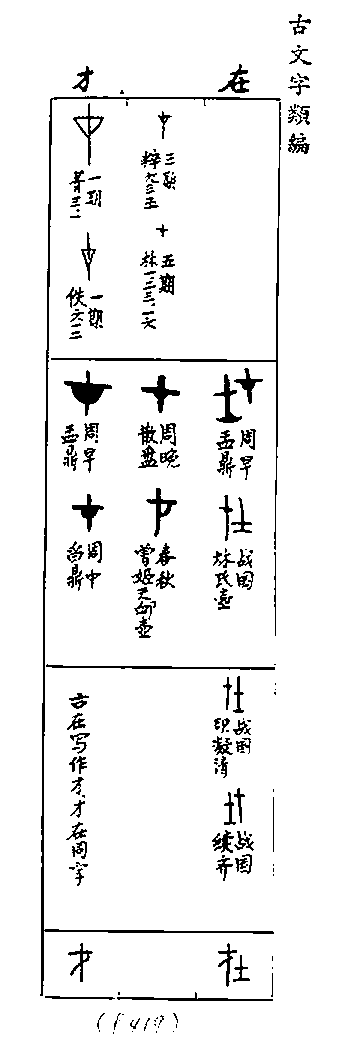 古文字類編
在
才
周早
盂鼎
战国
林氏壶
战国
印凝清
战国
续齐
三期
粹九三五
五期
林一.二三.一六
周晚
散盘
春秋
曾姬无卹壶
一期
菁三.一
一期
佚六一三
周早
盂鼎
周中
舀鼎
古在写作才,才在同字
在
才